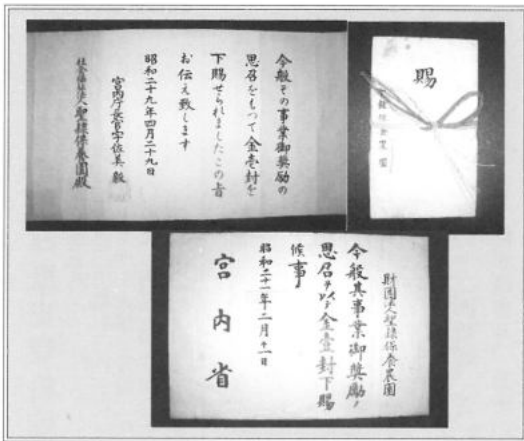 今般その事業御奨励の
思召をもつて金壱封を
下賜せられましたこの旨
お伝え致します
昭和二十九年四月二十九日
宮内庁長官宇佐美毅
社会福祉法人聖隷保養園殿
賜
財団法人聖隷保養農園
今般其事業御奨励ノ
思召ヲ以テ金壹封下賜
候事
昭和二十一年二月十一日
宮内省